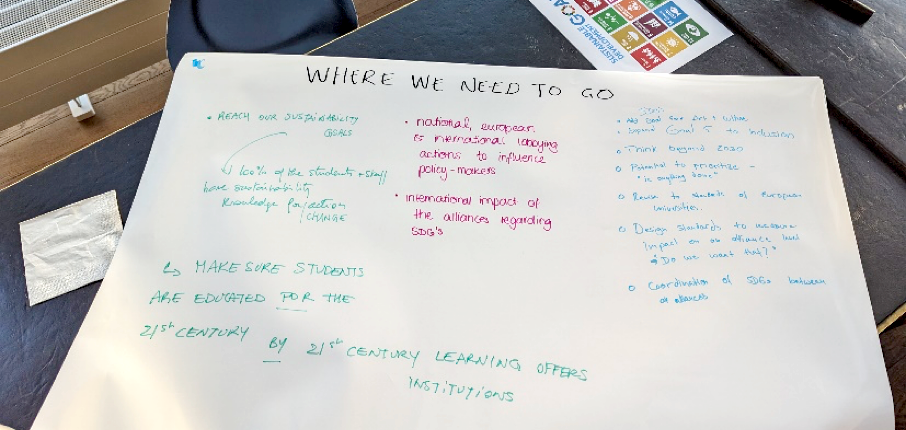 WHERE WE NEED TO GO
• REACH OUR SUSTAINABILITY
GOALS
100% of the students + staff
have sustainability
knowledge for action
/CHANGE
MAKE SURE STUDENTS
ARE EDUCATED FOR THE
21st CENTURY BY 21st CENTURY LEARNING OFFERS
INSTITUTIONS
• national, european
& international lobbying
actions to influence
policy-makers
• international impact of
the alliances regarding
SDG's
Expand Goal 5 to inclusion
Think beyond 2030
Potential to prioritize -
"is anything done"
to students of European
Universities
Design standards to measure
impact on an alliance level
"Do we want that?"
Coordination of SDGs between
alliances
SUSTAINABLE
DEVELOPMENT
GOALS